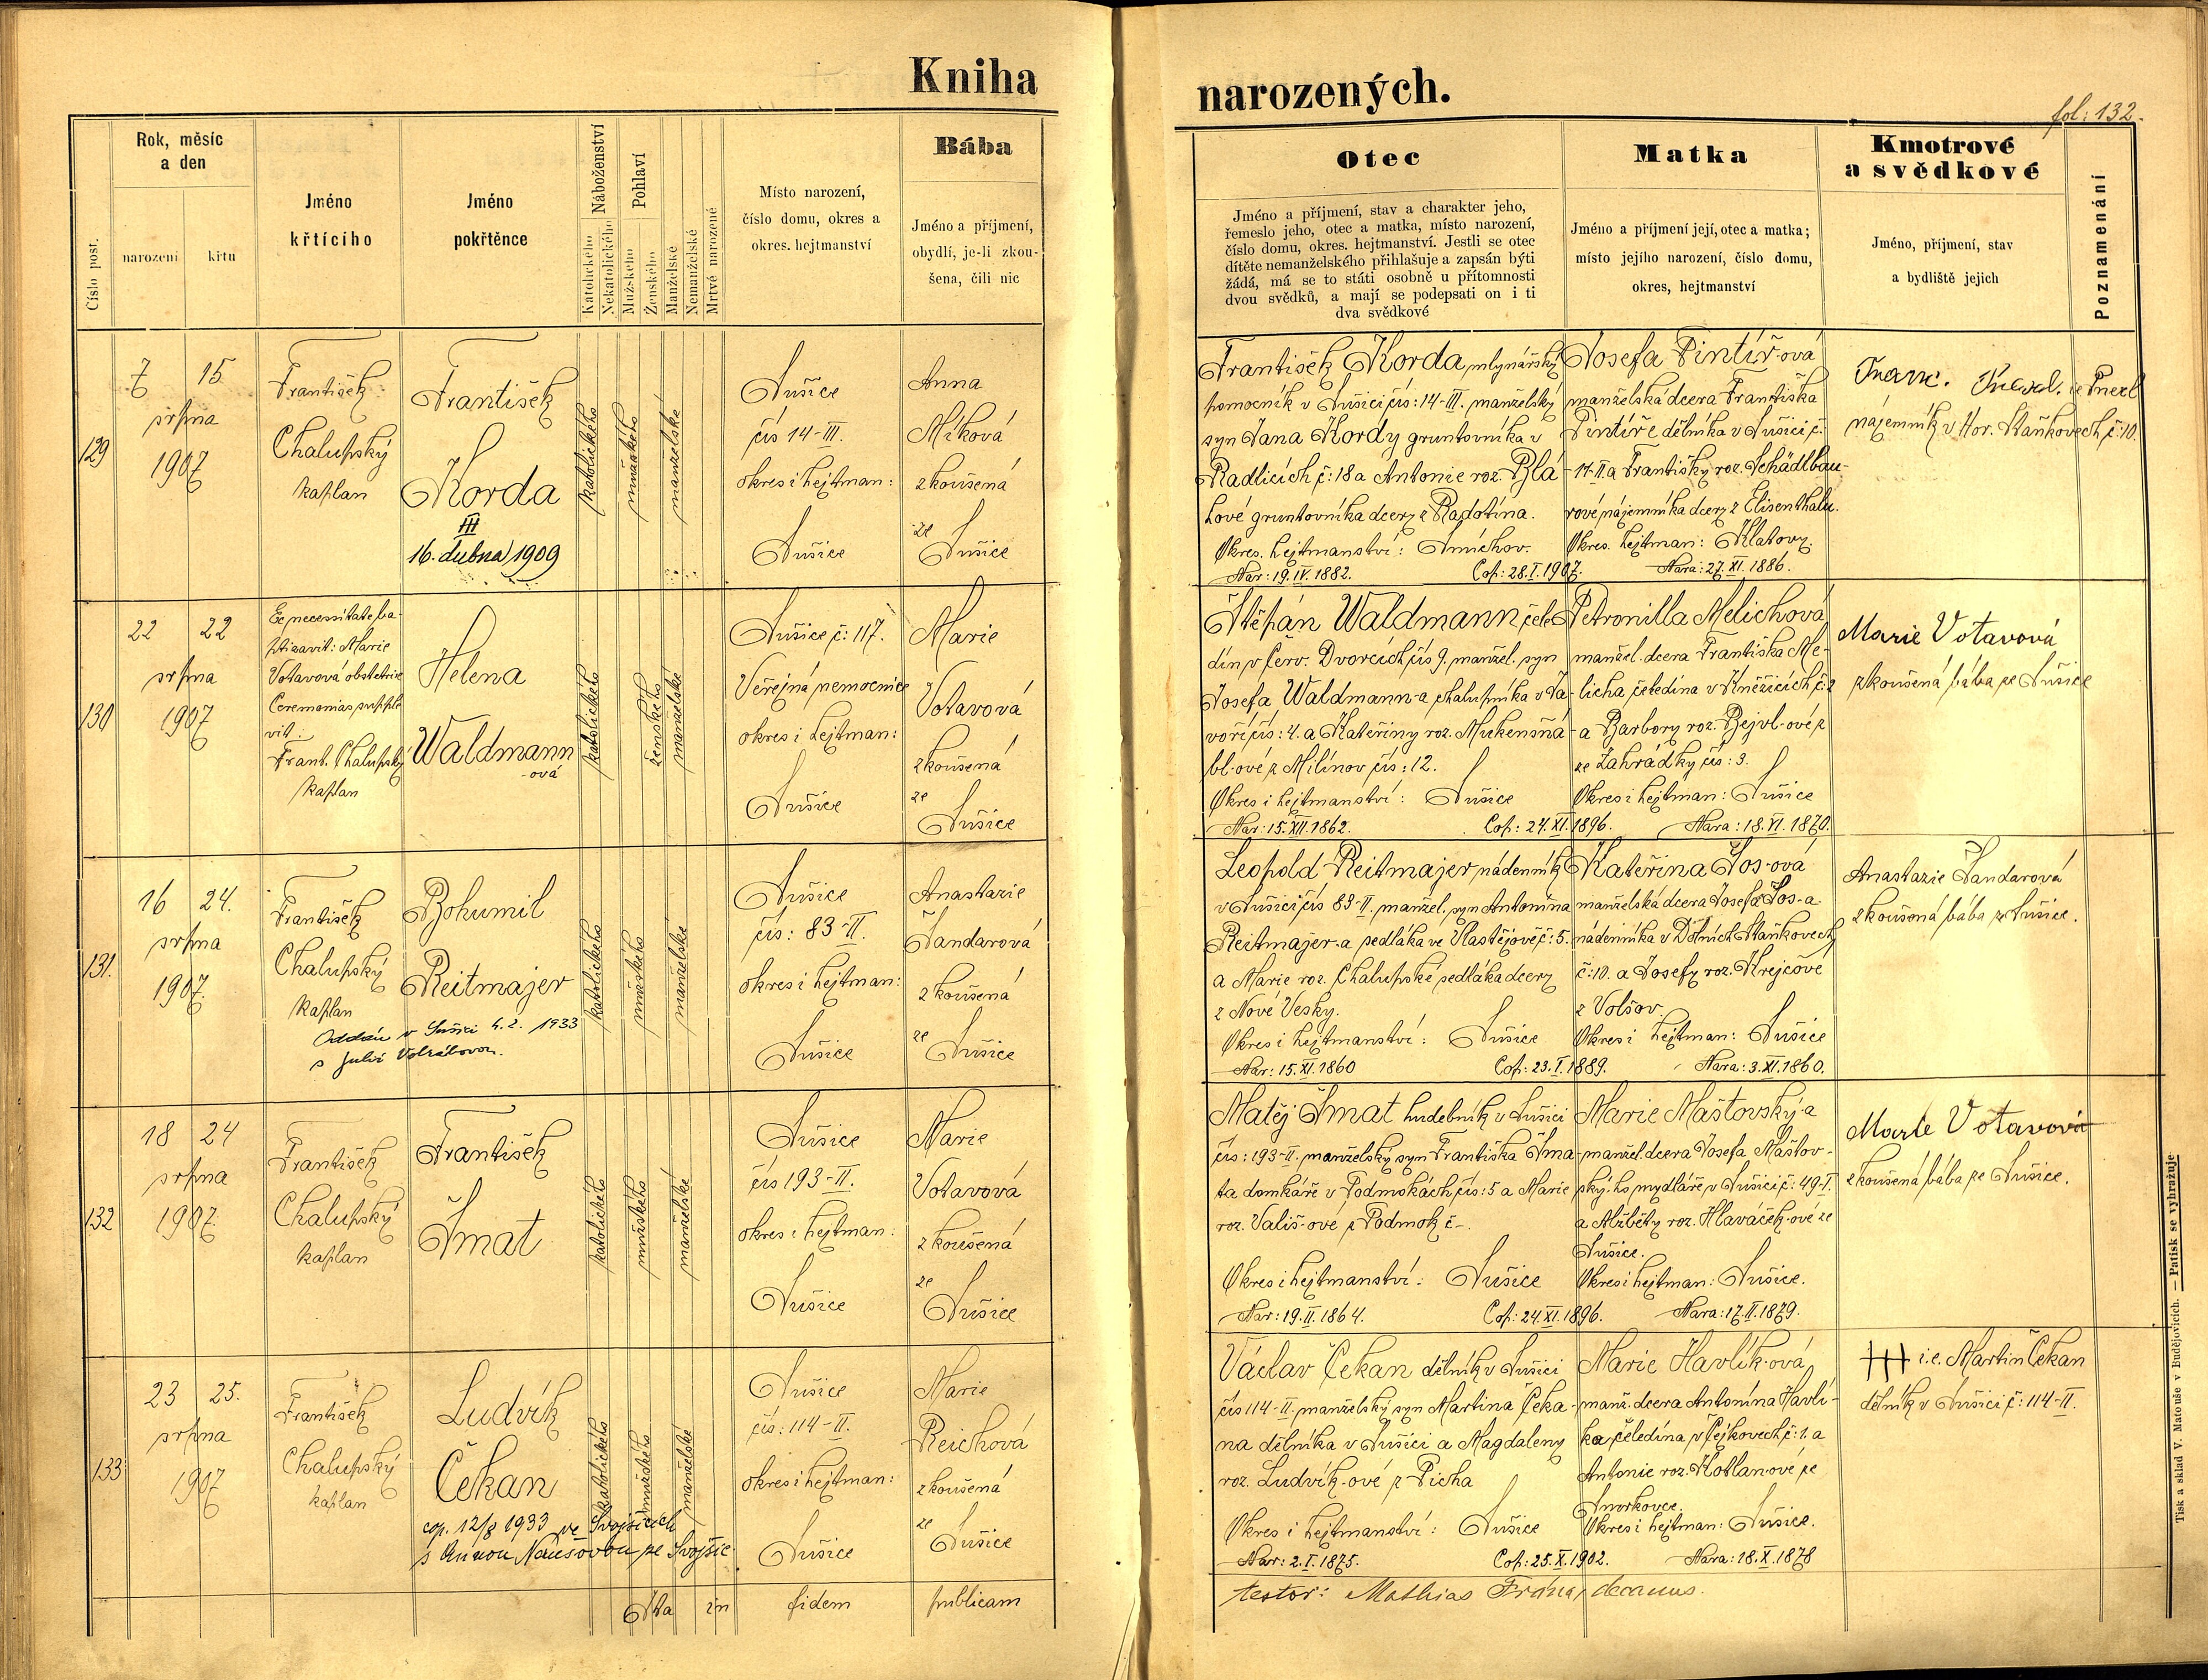 Kniha
narozených.
fol: 132.
Číslo post.
Rok, měsíc
a den
narození
křtu
Jméno
křtícího
Jméno
pokřtěnce
Náboženství
Katolického
Nekatolického
Pohlaví
Mužského
Ženského
Manželské
Nemanželské
Mrtvé narozené
Místo narození,
číslo domu, okres a
okres. hejtmanství
Bába
Jméno a příjmení,
obydlí, je-li zkou-
šena, čili nic
Otec
Jméno a příjmení, stav a charakter jeho,
řemeslo jeho, otec a matka, místo narození,
číslo domu, okres. hejtmanství. Jestli se otec
dítěte nemanželského přihlašuje a zapsán býti
žádá, má se to státi osobně u přítomnosti
dvou svědků, a mají se podepsati on i ti
dva svědkové
Matka
Jméno a příjmení její, otec a matka;
místo jejího narození, číslo domu,
okres, hejtmanství
Kmotrové
a svědkové
Jméno, příjmení, stav
a bydliště jejich
Poznamenání
129
7 15
srpna
1907
František
Chalupský
kaplan
František
Korda
III
16. dubna 1909
katolického
mužského
manželské
Sušice
čís 14-III.
okres i hejtman:
Sušice
Anna
Míková
zkoušená
ze
Sušice
František Korda, mlynářský
pomocník v Sušici čís: 14-III. manželský
syn Jana Kordy gruntovníka v
Radlicích č: 18 a Antonie roz. Blá-
hové gruntovníka dcery z Radotína.
Okres. hejtmanství: Smíchov.
Nar: 19.IV.1882. Cop: 28.I.1907.
Josefa Pintířová
manželská dcera Františka
Pintíře dělníka v Sušici č:
14-II a Františky roz. Schädlbau-
rové nájemníka dcery z Elisenthalu.
Okres. hejtman: Klatovy.
Nara: 27.XI.1886.
Franc. ie Pnerl
nájemník v Hor. Staňkovech č: 10.
130
22 22
srpna
1907
Ex necessitate ba-
ptizavit: Marie
Votavová obstetrix
Ceremonias supple
vit:
Frant. Chalupský
kaplan
Helena
Waldmann
-ová
katolického
ženského
manželské
Sušice č: 117.
Veřejná nemocnice
okres i hejtman:
Sušice
Marie
Votavová
zkoušená
ze
Sušice
Štěpán Waldmann, čele-
dín v Červ. Dvorcích čís 9. manžel. syn
Josefa Waldmann-a, chalupníka v Ja-
voří čís: 4. a Kateřiny roz. Mukenšná-
bl-ové z Milínov čís: 12.
Okres i hejtmanství: Sušice
Nar: 15.XII.1862. Cop: 24.XI.1896.
Petronilla Melichová,
manžel. dcera Františka Me-
licha čeledína v Kněžicích č: 2
a Barbory roz. Bejvl-ové z
ze Zahrádky čís: 3.
Okres i hejtman: Sušice
Nara: 18.VI.1870.
Marie Votavová
zkoušená bába ze Sušice
131.
16 24.
srpna
1907.
František
Chalupský
kaplan
Bohumil
Reitmajer
Oddán v Sušici 4.2. 1933
s Julií
katolického
mužského
manželské
Sušice
čís: 83-II.
okres i hejtman:
Sušice
Anastazie
Šandarová
zkoušená
ze
Sušice
Leopold Reitmajer, nádenník
v Sušici čís 83-II. manžel. syn Antonína
Reitmajer-a sedláka ve Vlastějově č: 5.
a Marie roz. Chalupské sedláka dcery
z Nové Vesky.
Okres i hejtmanství: Sušice
Nar: 15.XI.1860 Cop: 23.I.1889.
Kateřina Šos-ová
manželská dcera Josefa Šos-a
nádenníka v Dolních Staňkovech
č: 10. a Josefy roz. Krejčové
z Volšov.
Okres i hejtman: Sušice
Nara: 3.XI.1860.
Anastazie Šandarová
zkoušená bába z Sušice.
132
18 24
srpna
1907.
František
Chalupský
kaplan
František
Šmat
katolického
mužského
manželské
Sušice
čís 193-II.
okres i hejtman:
Sušice
Marie
Votavová
zkoušená
ze
Sušice
Matěj Šmat hudebník v Sušici
čís: 193-II. manželský syn Františka Šma-
ta domkáře v Podmokách čís: 5 a Marie
roz. Vališ-ové z Podmok č-.
Okres i hejtmanství: Sušice
Nar: 19.II.1864. Cop: 24.XI.1896.
Marie Maštovský-a
manžel. dcera Josefa Maštov-
ský-ho mydláře v Sušici č: 49-I.
a Alžběty roz. Hlaváček-ové ze
Sušice.
Okres i hejtman: Sušice.
Nara: 17.II.1879.
Marie Votavová
zkoušená bába ze Sušice.
133
23 25.
srpna
1907
František
Chalupský
kaplan
Ludvík
Čekan
cop. 12/8 1933 ve Svojšicích
s Annou Naušovou ze Svojšic
katolického
mužského
manželské
Sušice
čís: 114-II.
okres i hejtman:
Sušice
Marie
Reichová
zkoušená
ze
Sušice
Václav Čekan dělník v Sušici
čís 114-II. manželský syn Martina Čeka-
na dělníka v Sušici a Magdaleny
roz. Ludvík-ové z Picha
Okres i hejtmanství: Sušice
Nar: 2.I.1875. Cop: 25.X.1902.
Marie Havlík-ová,
manž. dcera Antonína Havlí-
ka čeledína v Čejkovech č: 1. a
Antonie roz. Kotlan-ové ze
Smrkovce.
Okres i hejtman: Sušice.
Nara: 18.X.1878
+++ i.e. Martin Čekan
dělník v Sušici č: 114-II.
Ita in fidem publicam
testor: Mathias Frána, decanus.
Tisk a sklad V. Matouše v Budějovicích. — Patisk se vyhražuje